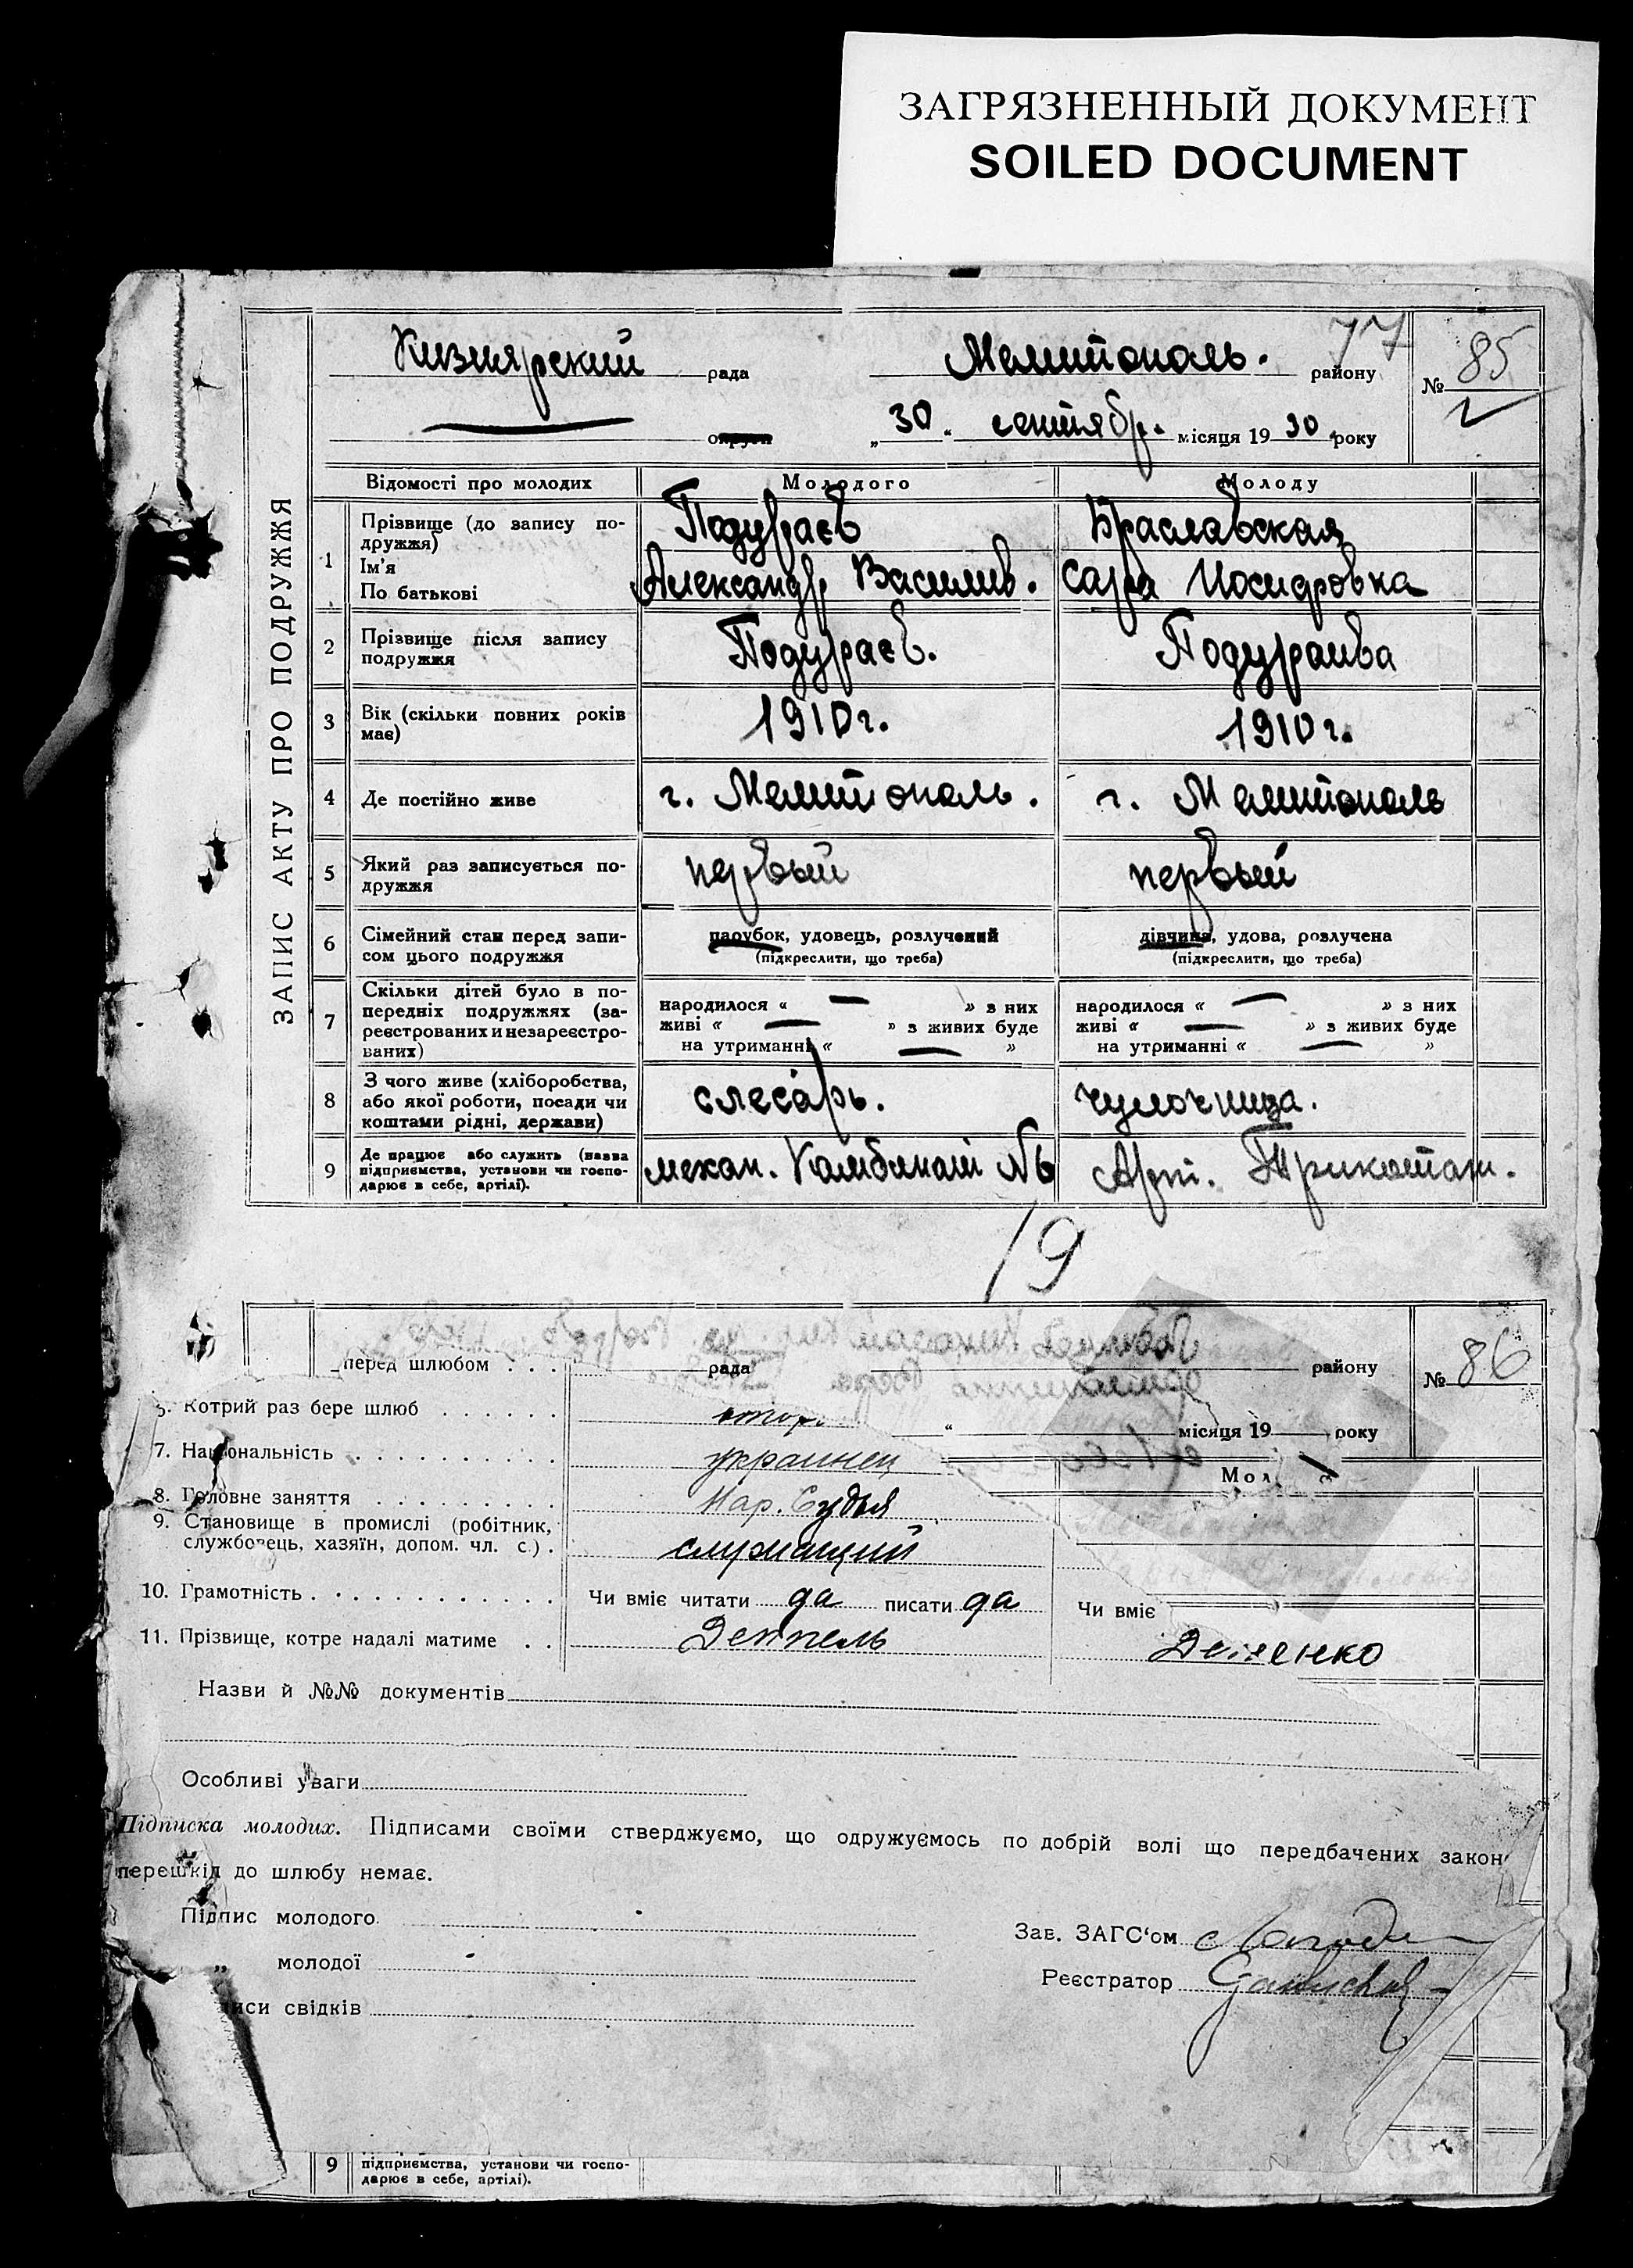 ЗАГРЯЗНЕННЫЙ ДОКУМЕНТ
SOILED DOCUMENT
ЗАПИС АКТУ ПРО ПОДРУЖЖЯ
Кизиярский рада Мелитополь. району 77 № 85
округи „30" сентябр. місяця 1930 року
Відомості про молодих Молодого Молоду
1 Прізвище (до запису по-
дружжя) Подураєв Браславская
Ім'я
По батькові Александр Василив. Сара Иосифовка
2 Прізвище після запису
подружжя Подураєв. Подураива
3 Вік (скільки повних років
має) 1910 г. 1910 г.
4 Де постійно живе г. Мелитополь. г. Мелитополь
5 Який раз записується по-
дружжя первый первый
6 Сімейний стан перед запи-
сом цього подружжя парубок, удовець, розлучений дівчина, удова, розлучена
(підкреслити, що треба) (підкреслити, що треба)
7 Скільки дітей було в по-
передніх подружжях (за-
реєстрованих и незареєстро-
ваних)
народилося « — » з них народилося « — » з них
живі « — » з живих буде живі « — » з живих буде
на утриманні « — » на утриманні « — »
8 З чого живе (хліборобства,
або якої роботи, посади чи
коштами рідні, держави) слесарь. чулочница.
9 Де працює або служить (назва
підприємства, установи чи госпо-
дарює в себе, артілі). механ. Камбинат №6 Арт. Трикотаж.
19
перед шлюбом . . . рада району № 86
Котрий раз бере шлюб . . . . . .
місяця 19 року
7. Національність . . . . . . . . . . украинец
8. Головне заняття . . . . . . . . . Нар. Судья
9. Становище в промислі (робітник,
службовець, хазяїн, допом. чл. с.) . служащий
10. Грамотність . . . . . . . . . . . Чи вміє читати да писати да Чи вміє
11. Прізвище, котре надалі матиме . . Деппель
Назви й №№ документів
Особливі уваги
Підписка молодих. Підписами своїми стверджуємо, що одружуємось по добрій волі що передбачених закон
перешкід до шлюбу немає.
Підпис молодого
Зав. ЗАГС'ом
„ молодої
Реєстратор
иси свідків
9 підприємства, установи чи госпо-
дарює в себе, артілі).